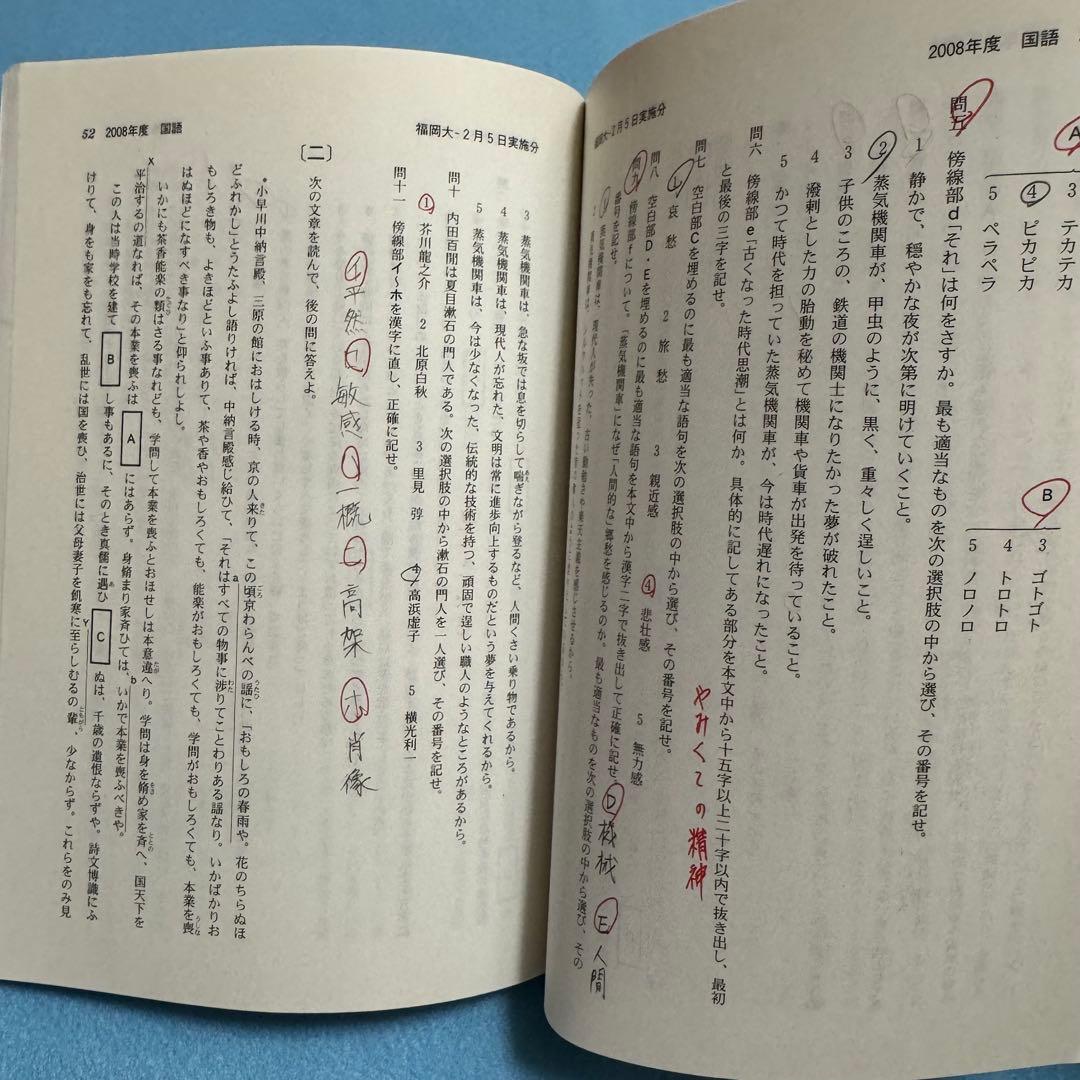 2008年度 国語
A
3 テカテカ
④ ピカピカ
5 ペラペラ
B
3 ゴトゴト
4 トロトロ
5 ノロノロ
問五 傍線部d「それ」は何をさすか。最も適当なものを次の選択肢の中から選び、その番号を記せ。
1 静かで、穏やかな夜が次第に明けていくこと。
② 蒸気機関車が、甲虫のように、黒く、重々しく逞しいこと。
3 子供のころの、鉄道の機関士になりたかった夢が破れたこと。
4 潑剌とした力の胎動を秘めて機関車や貨車が出発を待っていること。
5 かつて時代を担っていた蒸気機関車が、今は時代遅れになったこと。
問六 傍線部e「古くなった時代思潮」とは何か。具体的に記してある部分を本文中から十五字以上二十字以内で抜き出し、最初
と最後の三字を記せ。
やみくての精神
問七 空白部Cを埋めるのに最も適当な語句を次の選択肢の中から選び、その番号を記せ。
1 哀愁 2 旅愁 3 親近感 ④ 悲壮感 5 無力感
問八 空白部D・Eを埋めるのに最も適当な語句を本文中から漢字二字で抜き出して正確に記せ。
D 機械 E 人間
問九 傍線部fについて。「蒸気機関車」になぜ「人間的な」郷愁を感じるのか。最も適当なものを次の選択肢の中から選び、その
番号を記せ。
1 蒸気機関車は、現代人が失った、古い勤勉さや楽天主義を感じさせるから。
福岡大-2月5日実施分
福岡大-2月5日実施分
52 2008年度 国語
3 蒸気機関車は、急な坂では息を切らして喘ぎながら登るなど、人間くさい乗り物であるから。
あえ
4 蒸気機関車は、現代人が忘れた、文明は常に進歩向上するものだという夢を与えてくれるから。
5 蒸気機関車は、今は少なくなった、伝統的な技術を持つ、頑固で逞しい職人のようなところがあるから。
問十 内田百閒は夏目漱石の門人である。次の選択肢の中から漱石の門人を一人選び、その番号を記せ。
① 芥川龍之介 2 北原白秋 3 里見弴 4 高浜虚子 5 横光利一
問十一 傍線部イ～ホを漢字に直し、正確に記せ。
イ 平然 ロ 敏感 ハ 一概 ニ 高架 ホ 肖像
〔二〕 次の文章を読んで、後の問に答えよ。
・小早川中納言殿、三原の館におはしける時、京の人来りて、この頃京わらんべの謡に、「おもしろの春雨や。花のちらぬほ
きた ころ うたひ
どふれかし」とうたふよし語りければ、中納言殿感じ給ひて、「それはすべての物事に渉りてことわりある謡なり。いかばかりお
a わた
もしろき物も、よきほどといふ事ありて、茶や香やおもしろくても、能楽がおもしろくても、学問がおもしろくても、本業を喪
うしな
はぬほどになすべき事なり」と仰られしよし。
いかにも茶香能楽の類はさる事なれども、学問して本業を喪ふとおほせしは本意違へり。学問は身を脩め家を斉へ、国天下を
たぐひ たが をさ ととの
X 平治するの道なれば、その本業を喪ふは A にはあらず。身脩まり家斉ひては、いかで本業を喪ふべきや。
b
この人は当時学校を建て B し事もあるに、そのとき真儒に遇ひ C ぬは、千歳の遺恨ならずや。詩文博識にふ
あ
けりて、身をも家をも忘れて、乱世には国を喪ひ、治世には父母妻子を飢寒に至らしむるの輩、少なからず。これらをのみ見
Y ともがら